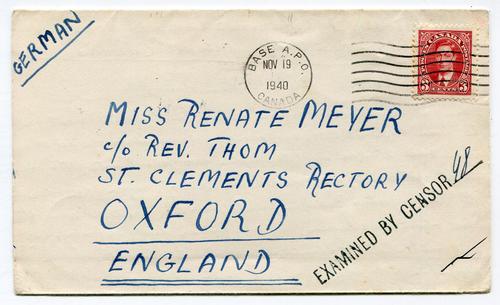 GERMAN
BASE A.P.O.
NOV 19
1940
CANADA
CANADA
3 CENTS 3
MISS RENATE MEYER
c/o REV. THOM
ST. CLEMENTS RECTORY
OXFORD
ENGLAND
EXAMINED BY CENSOR 48